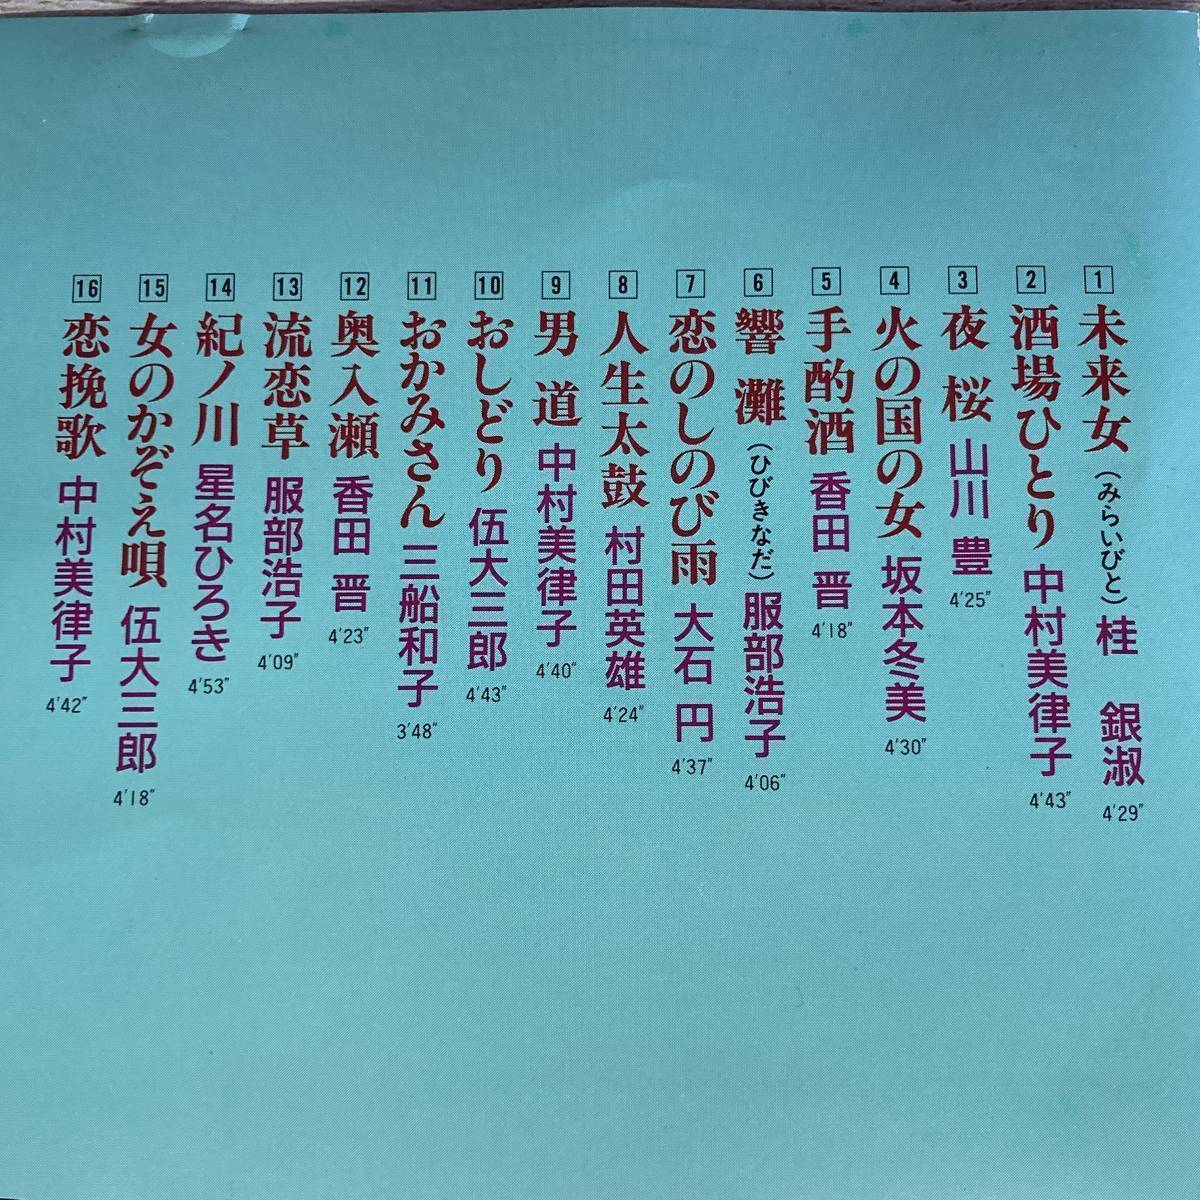 1 未来女（みらいびと） 桂 銀淑 4'29"
2 酒場ひとり 中村美律子 4'43"
3 夜桜 山川 豊 4'25"
4 火の国の女 坂本冬美 4'30"
5 手酌酒 香田 晋 4'18"
6 響灘（ひびきなだ） 服部浩子 4'06"
7 恋のしのび雨 大石 円 4'37"
8 人生太鼓 村田英雄 4'24"
9 男道 中村美律子 4'40"
10 おしどり 伍大三郎 4'43"
11 おかみさん 三船和子 3'48"
12 奥入瀬 香田 晋 4'23"
13 流恋草 服部浩子 4'09"
14 紀ノ川 星名ひろき 4'53"
15 女のかぞえ唄 伍大三郎 4'18"
16 恋挽歌 中村美律子 4'42"